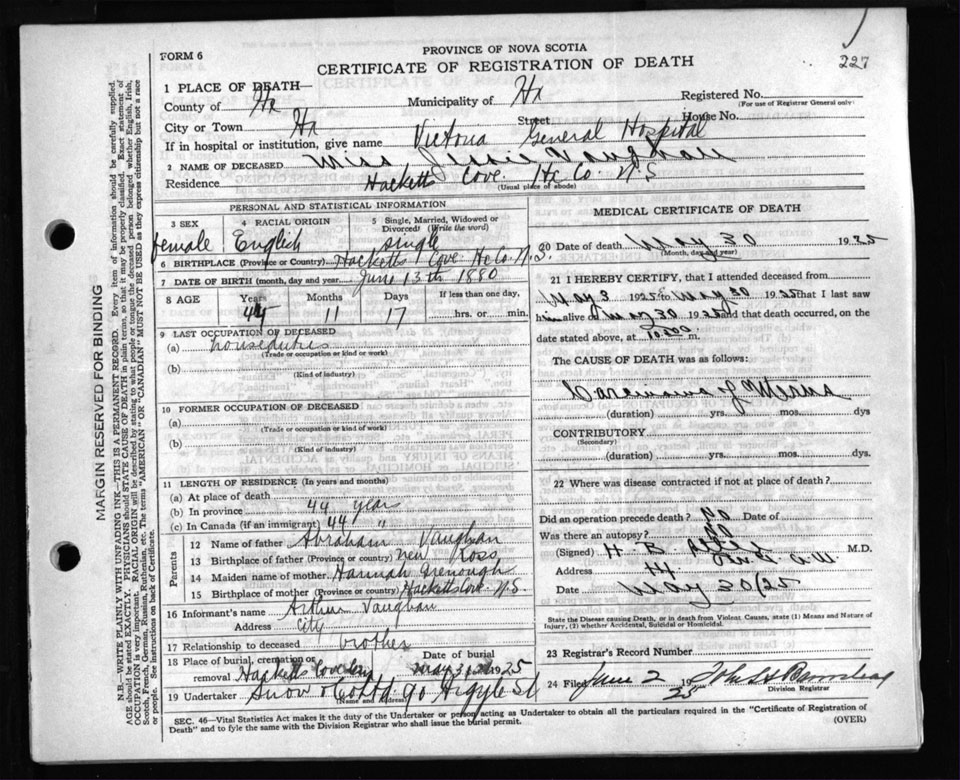 FORM 6
PROVINCE OF NOVA SCOTIA
CERTIFICATE OF REGISTRATION OF DEATH
227
1 PLACE OF DEATH—
County of Hx Municipality of Hx Registered No.
(For use of Registrar General only)
City or Town Hx Street House No.
If in hospital or institution, give name Victoria General Hospital
2 NAME OF DECEASED Miss Jessie Vaughan
Residence Hacketts Cove. Hx Co. N.S
(Usual place of abode)
PERSONAL AND STATISTICAL INFORMATION
3 SEX
female
4 RACIAL ORIGIN
English
5 Single, Married, Widowed or Divorced? (Write the word)
single
6 BIRTHPLACE (Province or Country) Hacketts Cove Hx Co. N.S.
7 DATE OF BIRTH (month, day and year) June 13th 1880
8 AGE Years Months Days If less than one day,
44 11 17 hrs. or min.
9 LAST OCCUPATION OF DECEASED
(a) houseduties
(Trade or occupation or kind or work)
(b)
(Kind of industry)
10 FORMER OCCUPATION OF DECEASED
(a)
(b)
11 LENGTH OF RESIDENCE (In years and months)
(a) At place of death
(b) In province 44 years
(c) In Canada (if an immigrant) 44 "
Parents
12 Name of father Abraham Vaughan
13 Birthplace of father (Province or country) New Ross
14 Maiden name of mother Hannah Grenough
15 Birthplace of mother (Province or country) Hacketts Cove N.S.
16 Informant's name Arthur Vaughan
Address City
17 Relationship to deceased brother
18 Place of burial, cremation or removal Hacketts Cove
Date of burial May 31 1925
19 Undertaker Snow & Co Ltd. 90 Argyle St
(Name and Address)
MEDICAL CERTIFICATE OF DEATH
20 Date of death May 30 1925
(Month, day and year)
21 I HEREBY CERTIFY, that I attended deceased from
May 3 1925 to May 30 1925 that I last saw
him alive on May 30 1925 and that death occurred, on
date stated above, at m.
The CAUSE OF DEATH was as follows:
Carcinoma of Uterus
(duration) yrs. mos. dys
CONTRIBUTORY
(Secondary)
(duration) yrs. mos. dys.
22 Where was disease contracted if not at place of death?
Did an operation precede death? no Date of
Was there an autopsy? no
(Signed) H. B. M.D.
Address
Date May 30/25
State the Disease causing Death, or in death from Violent Causes, state (1) Means and Nature of Injury, (2) whether Accidental, Suicidal or Homicidal.
23 Registrar's Record Number
24 Filed June 2 25
Division Registrar
SEC. 46—Vital Statistics Act makes it the duty of the Undertaker or person acting as Undertaker to obtain all the particulars required in the "Certificate of Registration of
Death" and to fyle the same with the Division Registrar who shall issue the burial permit.
(OVER)
MARGIN RESERVED FOR BINDING
N.B.—WRITE PLAINLY WITH UNFADING INK—THIS IS A PERMANENT RECORD. Every item of information should be carefully supplied.
AGE should be stated EXACTLY. PHYSICIANS should STATE CAUSE OF DEATH in plain terms, so that it may be properly classified. Exact statement of
OCCUPATION is very important. RACIAL ORIGIN will be described by stating to what people or tongue the deceased person belonged whether English, Irish,
Scotch, French, German, Russian, Ruthenian, etc. The terms "AMERICAN" OR "CANADIAN" MUST NOT BE USED as they express citizenship but not a race
or people. See instructions on back of Certificate.